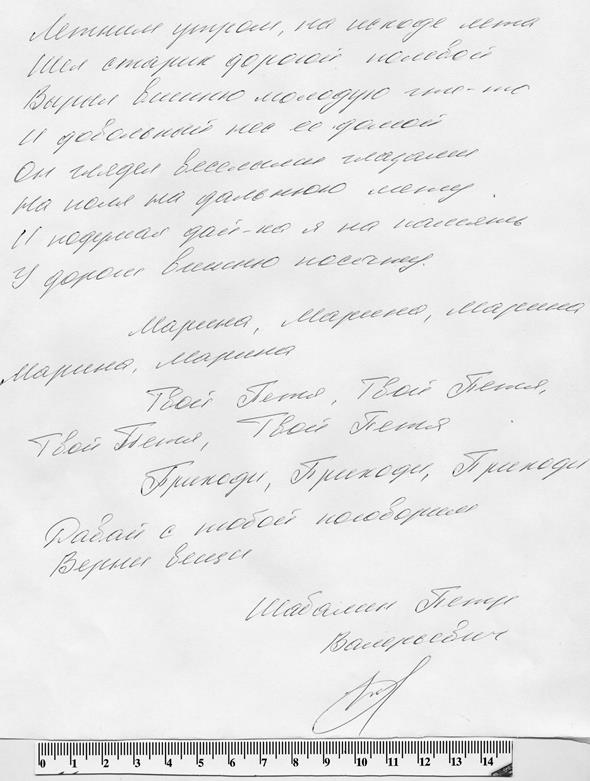 Летним утром, на исходе лета
Шел старик дорогой полевой
Вырыл вишню молодую где-то
И довольный нес ее домой
Он глядел веселыми глазами
На поля на дальнюю межу
И подумал дай-ка я на память
У дороги вишню посажу.
Марина, Марина, Марина
Марина, Марина
Твой Петя, Твой Петя,
Твой Петя, Твой Петя
Приходи, Приходи, Приходи
Давай с тобой поговорим
Верни вещи
Шабалин Петр
Валерьевич
0 1 2 3 4 5 6 7 8 9 10 11 12 13 14